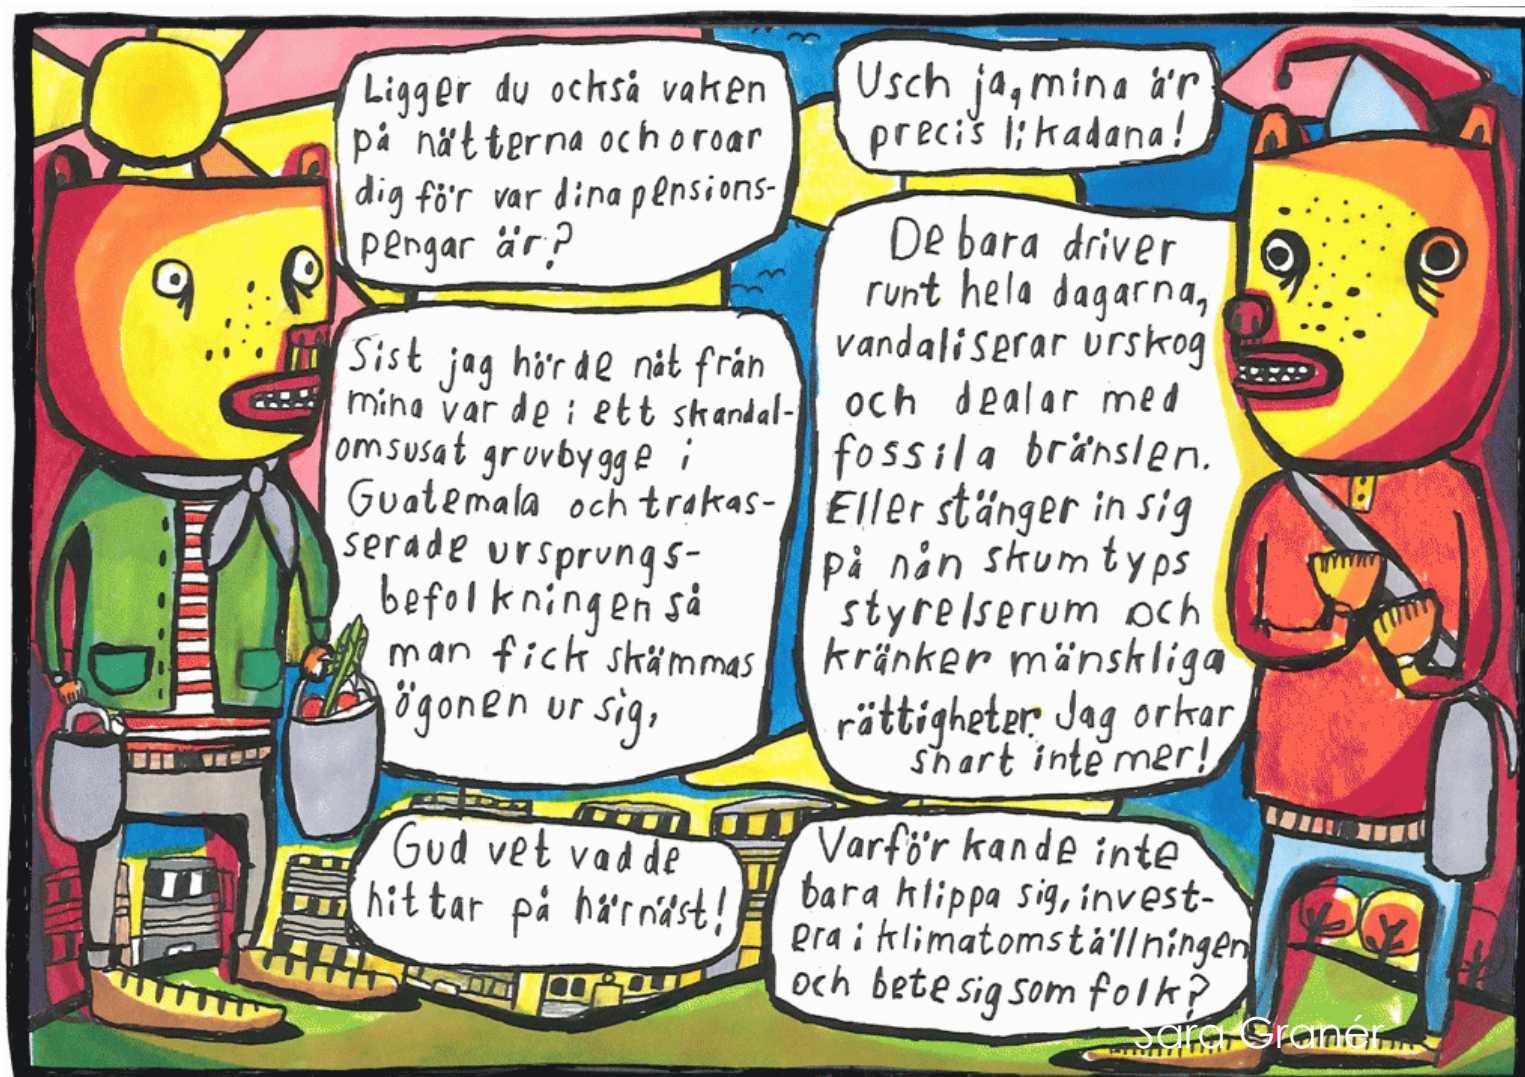 Ligger du också vaken
på nätterna och oroar
dig för var dina pensions-
pengar är?
Usch ja, mina är
precis likadana!
Sist jag hörde nåt från
mina var de i ett skandal-
omsusat gruvbygge i
Guatemala och trakas-
serade ursprungs-
befolkningen så
man fick skämmas
ögonen ur sig,
De bara driver
runt hela dagarna,
vandaliserar urskog
och dealar med
fossila bränslen.
Eller stänger in sig
på nån skum typs
styrelserum och
kränker mänskliga
rättigheter. Jag orkar
snart inte mer!
Gud vet vad de
hittar på härnäst!
Varför kan de inte
bara klippa sig, invest-
era i klimatomställningen
och bete sig som folk?
Sara Granér